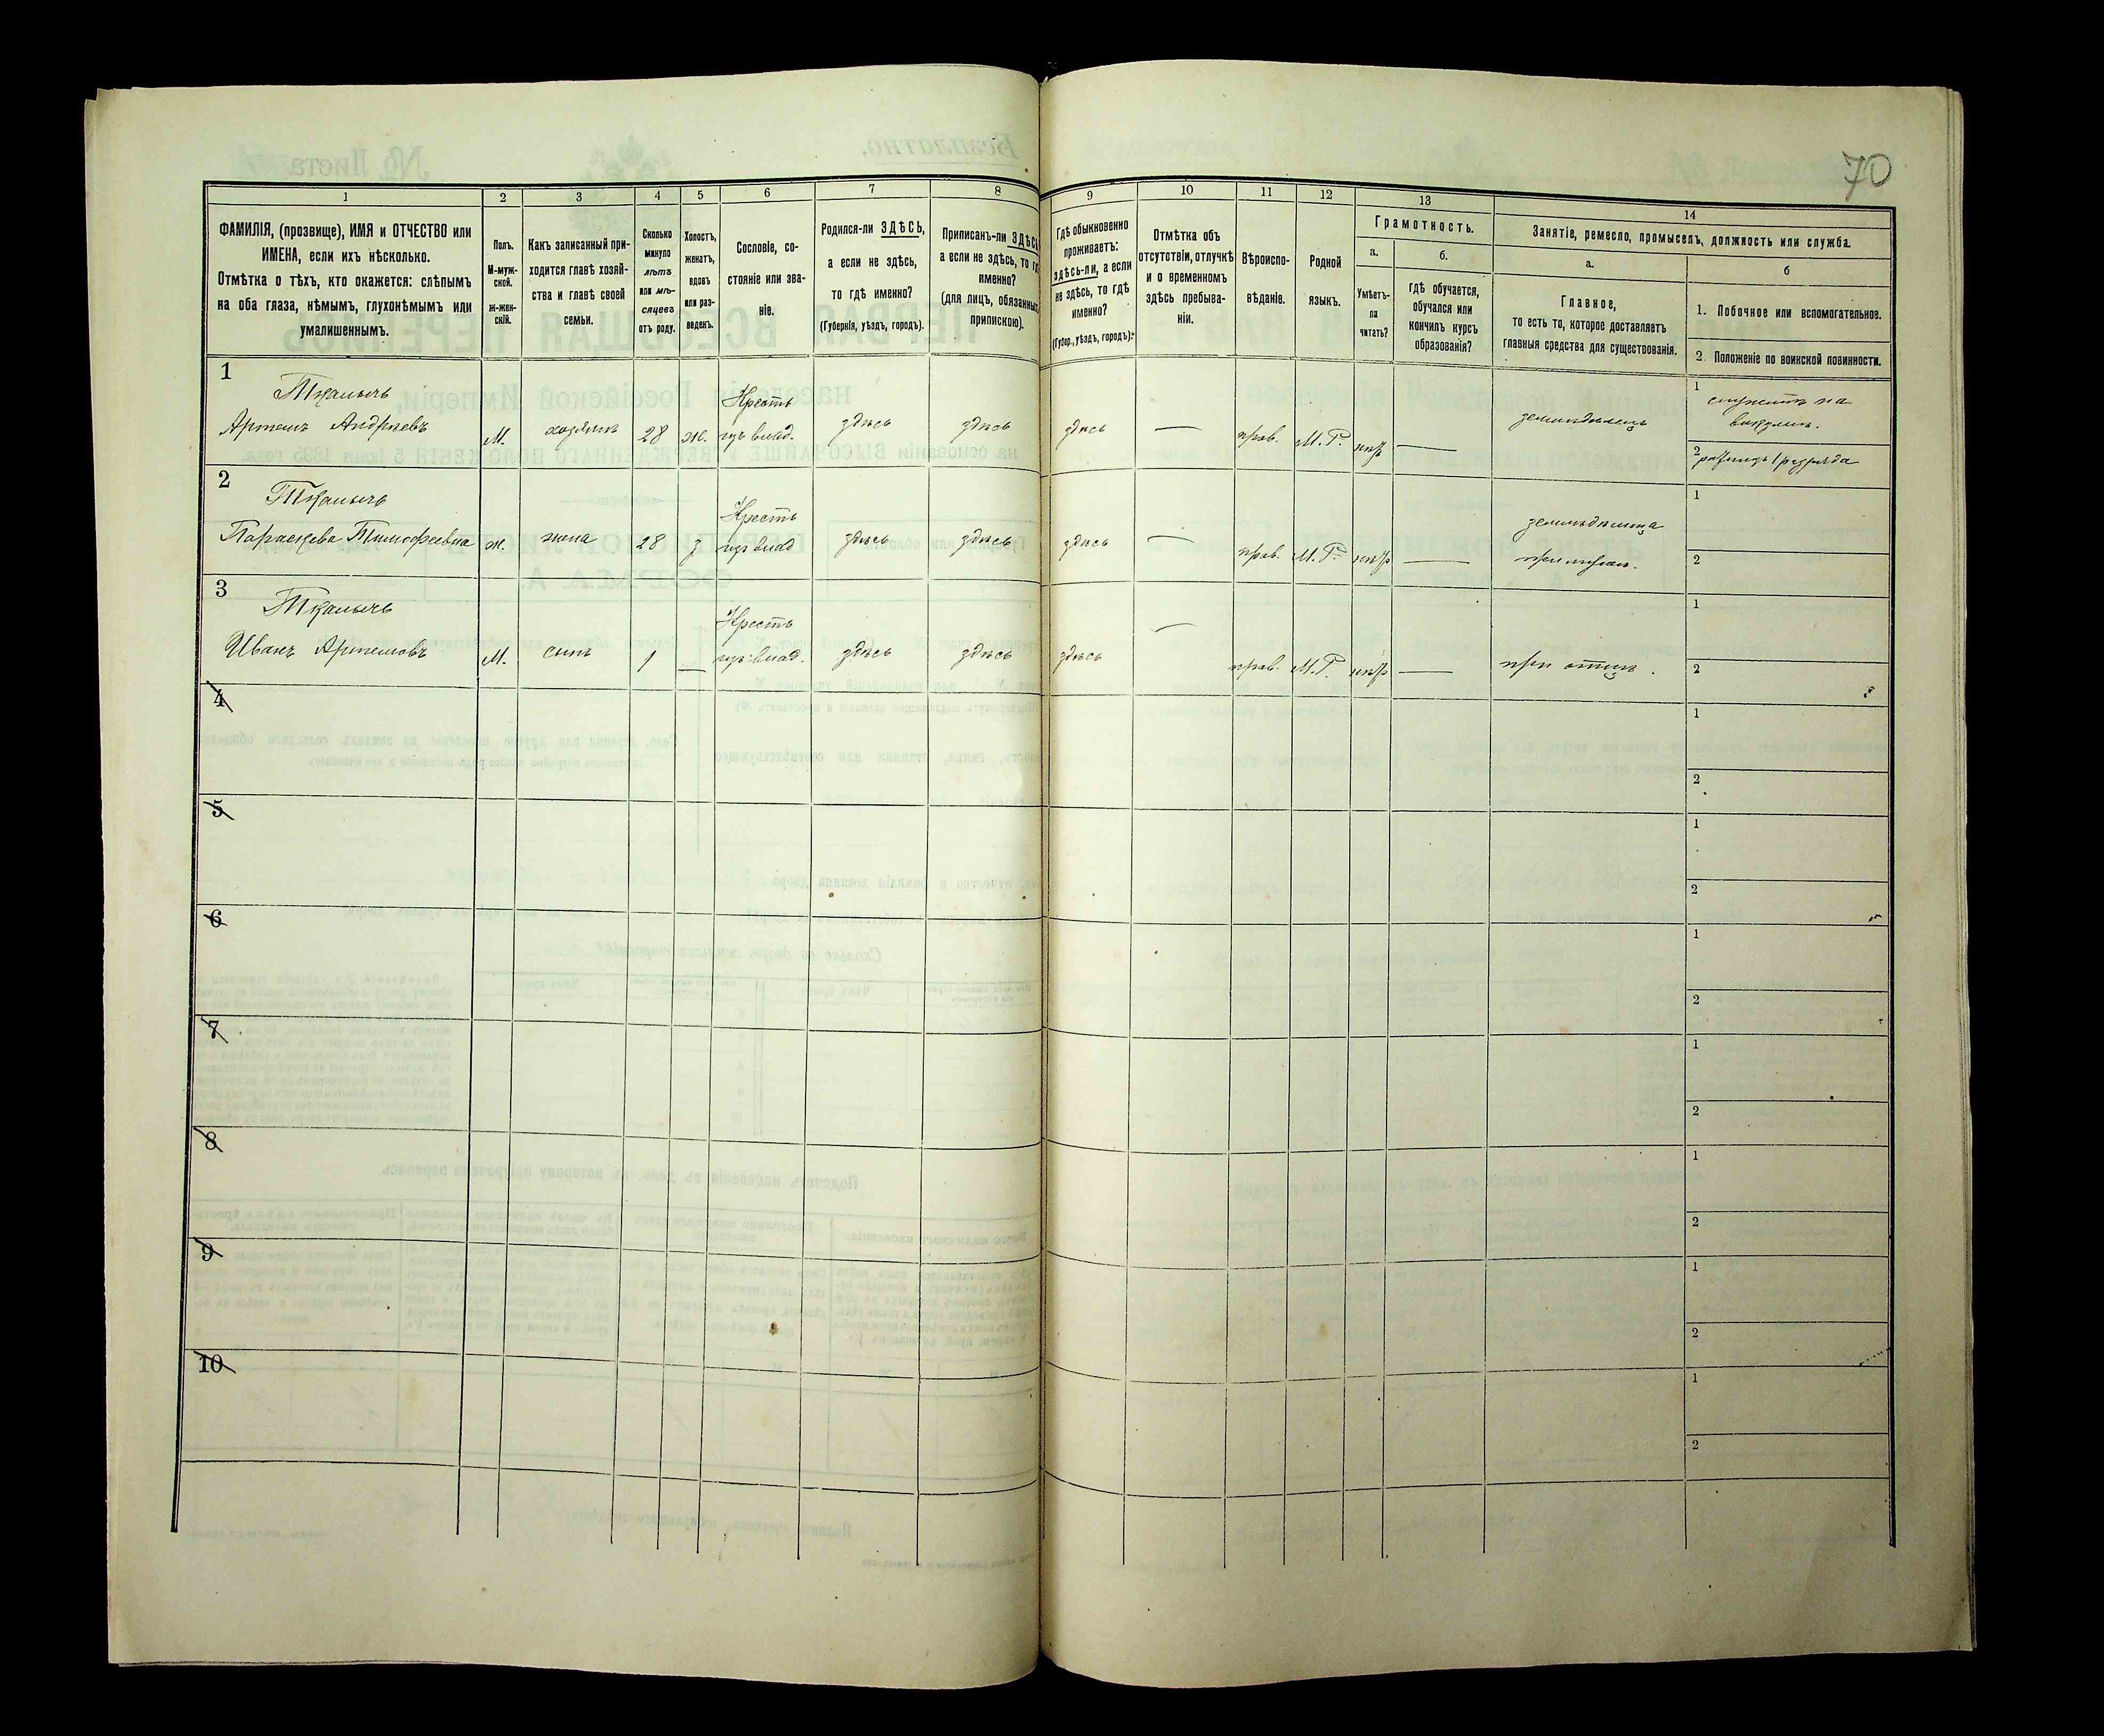 70
1
2
3
4
5
6
7
8
ФАМИЛІЯ, (прозвище), ИМЯ и ОТЧЕСТВО или
ИМЕНА, если ихъ нѣсколько.
Отмѣтка о тѣхъ, кто окажется: слѣпымъ
на оба глаза, нѣмымъ, глухонѣмымъ или
умалишеннымъ.
Полъ.
М-муж-
ской.
ж-жен-
скій.
Какъ записанный при-
ходится главѣ хозяй-
ства и главѣ своей
семьи.
Сколько
минуло
лѣтъ
или мѣ-
сяцевъ
отъ роду.
Холостъ,
женатъ,
вдовъ
или раз-
веденъ.
Сословіе, со-
стояніе или зва-
ніе.
Родился-ли ЗДѢСЬ,
а если не здѣсь,
то гдѣ именно?
(Губернія, уѣздъ, городъ).
Приписанъ-ли ЗДѢСЬ
а если не здѣсь, то гдѣ
именно?
(для лицъ, обязанныхъ
припискою).
9
10
11
12
13
14
Гдѣ обыкновенно
проживаетъ:
здѣсь-ли, а если
не здѣсь, то гдѣ
именно?
(Губер., уѣздъ, городъ).
Отмѣтка объ
отсутствіи, отлучкѣ
и о временномъ
здѣсь пребыва-
ніи.
Вѣроиспо-
вѣданіе.
Родной
языкъ.
Грамотность.
а.
Умѣетъ-
ли
читать?
б.
гдѣ обучается,
обучался или
кончилъ курсъ
образованія?
Занятіе, ремесло, промыселъ, должность или служба.
а.
Главное,
то есть то, которое доставляетъ
главныя средства для существованія.
б
1. Побочное или вспомогательное.
2. Положеніе по воинской повинности.
1
Ткалычъ
Артемъ Андреевъ
М.
хозяинъ
28
ж.
Крестъ
изъ влад.
здѣсь
здѣсь
здѣсь
—
прав.
М. Р.
—
земледѣлецъ
1
служитъ на
2
2
Ткалычъ
Параскева Тимофеевна
ж.
жена
28
з
Крестъ
изъ влад
здѣсь
здѣсь
здѣсь
—
прав.
М. Р.
—
при мужѣ.
1
2
3
Ткалычъ
Иванъ Артемовъ
М.
сынъ
1
—
Крестъ
изъ влад.
здѣсь
здѣсь
здѣсь
—
прав.
М. Р.
—
при отцѣ.
1
2
4
1
2
5
1
2
6
1
2
7
1
2
8
1
2
9
1
2
10
1
2